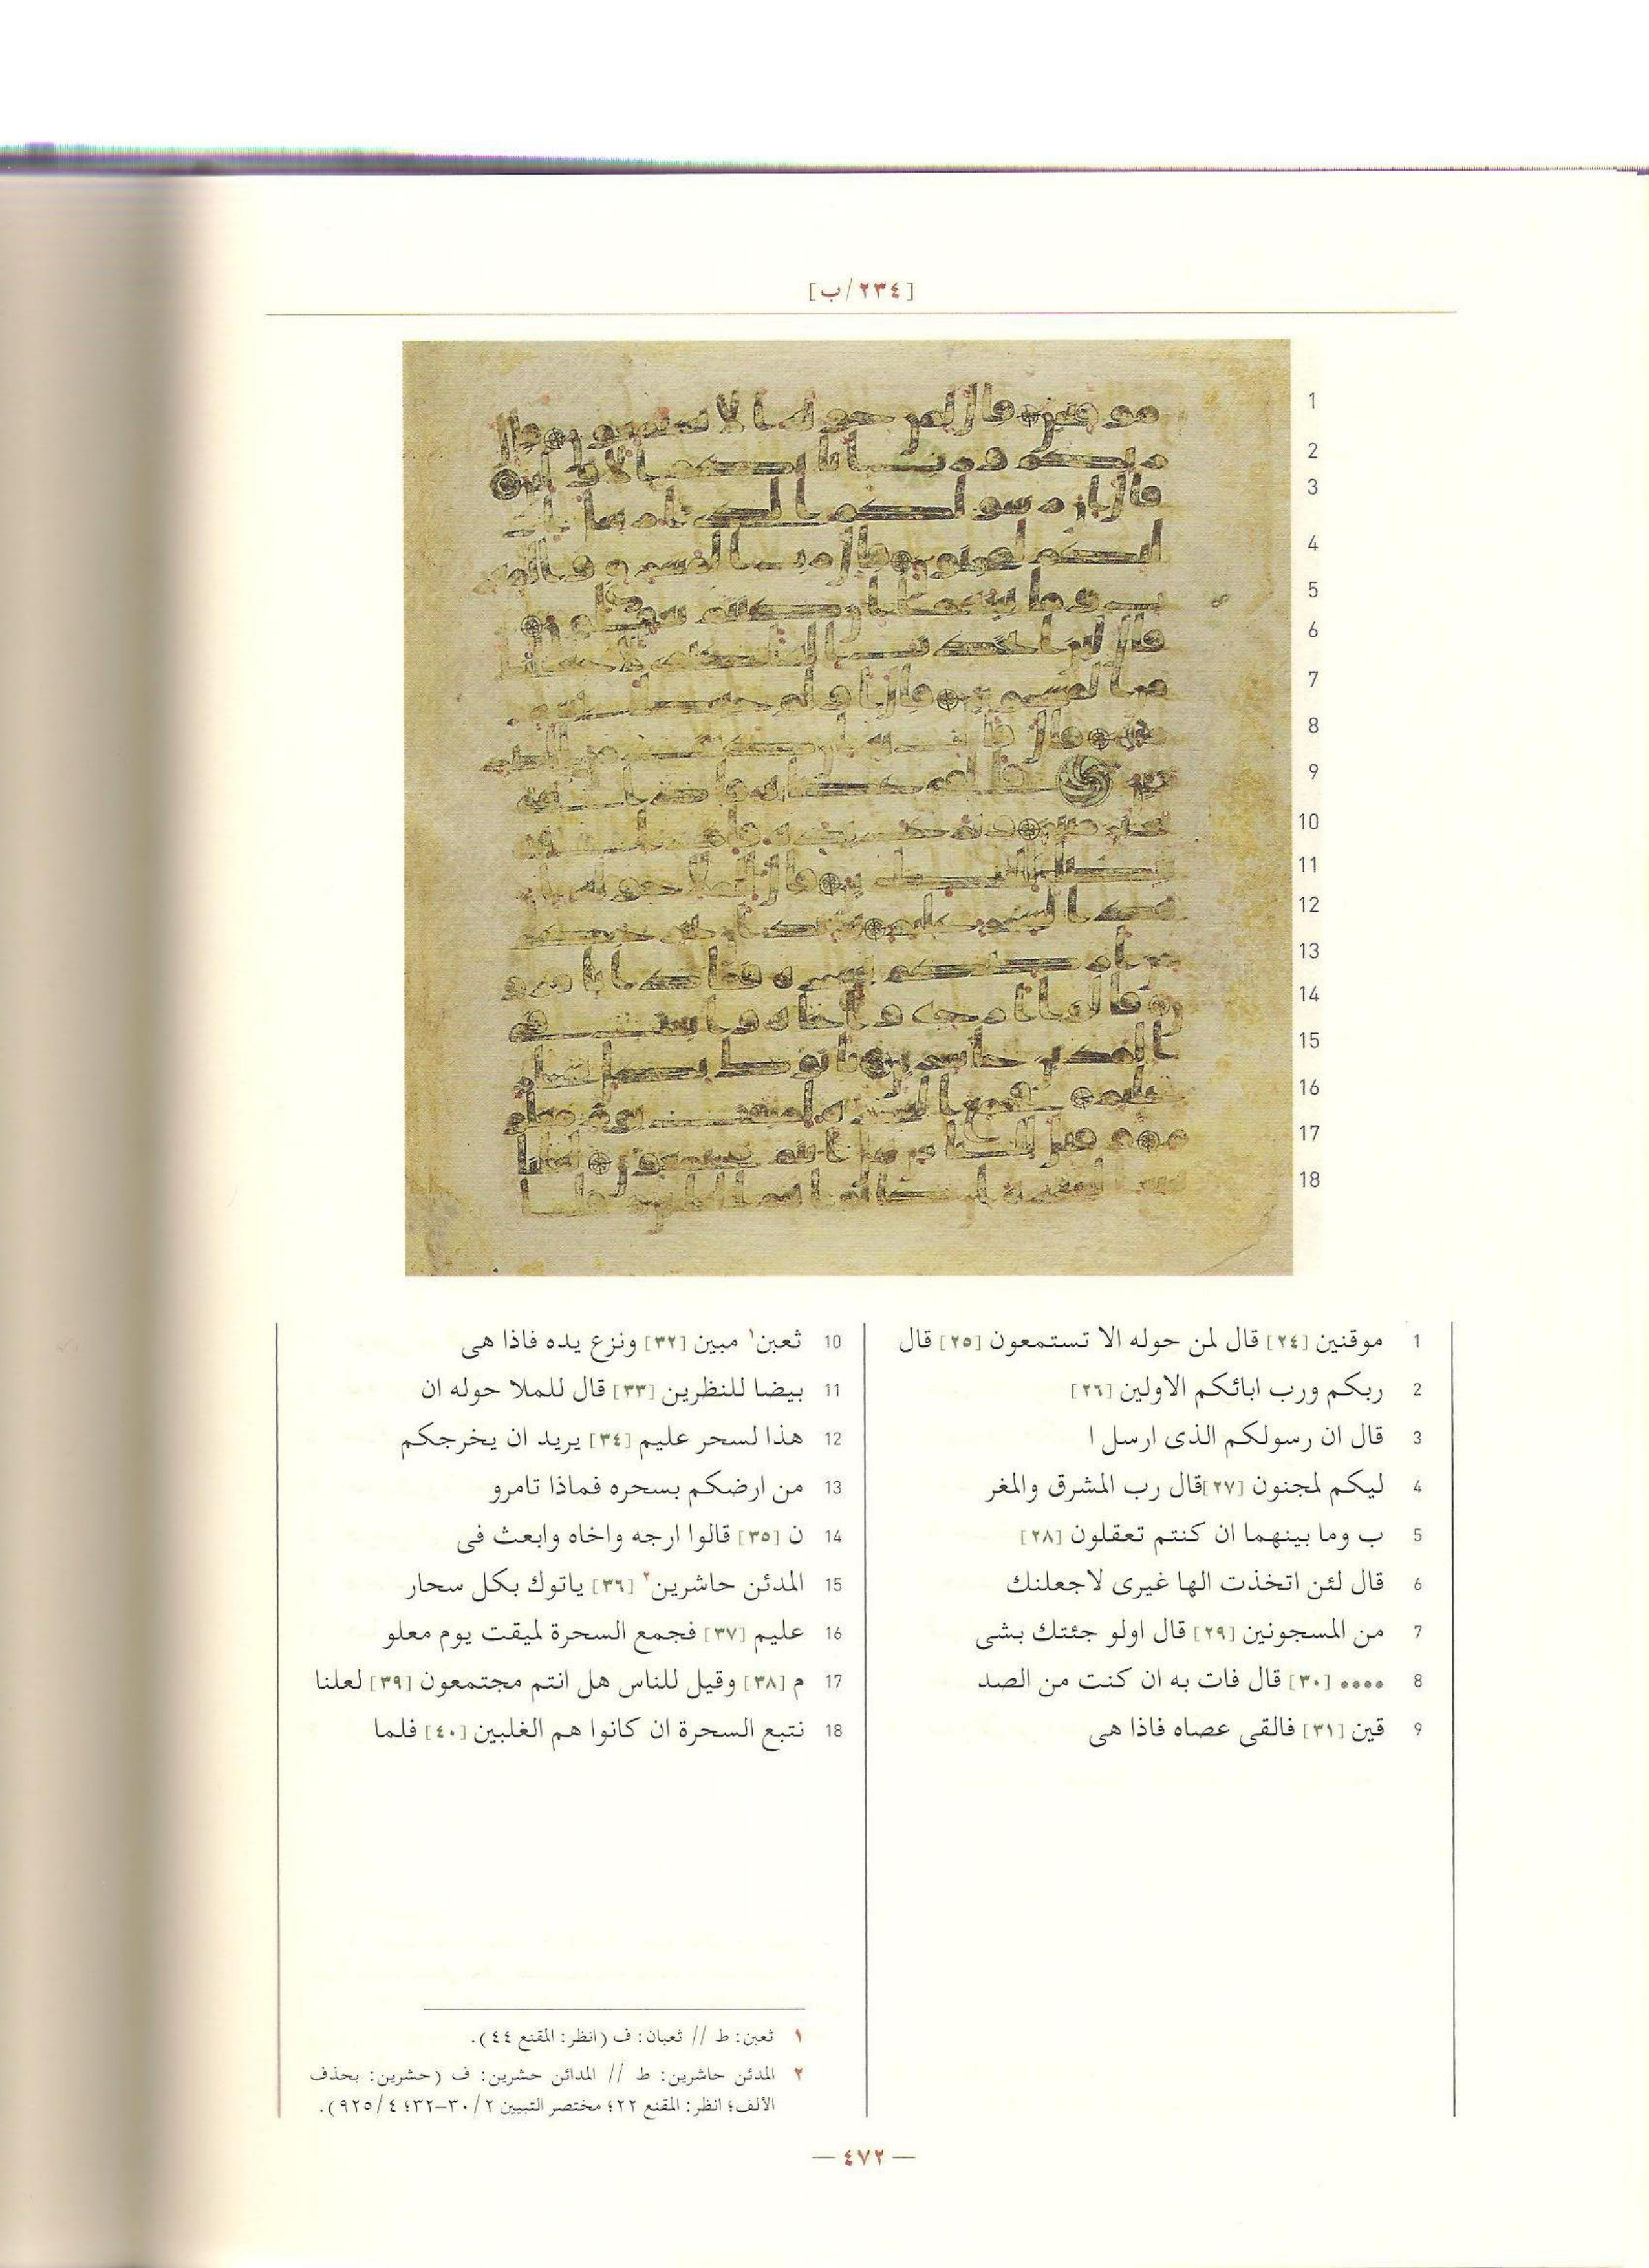 [٢٣٤/ب]
1
2
3
4
5
6
7
8
9
10
11
12
13
14
15
16
17
18
1 موقنين [٢٤] قال لمن حوله الا تستمعون [٢٥] قال
2 ربكم ورب ابائكم الاولين [٢٦]
3 قال ان رسولكم الذى ارسل ا
4 ليكم لمجنون [٢٧]قال رب المشرق والمغر
5 ب وما بينهما ان كنتم تعقلون [٢٨]
6 قال لئن اتخذت الها غيرى لاجعلنك
7 من المسجونين [٢٩] قال اولو جئتك بشى
8 •••• [٣٠] قال فات به ان كنت من الصد
9 قين [٣١] فالقى عصاه فاذا هى
10 ثعبن١ مبين [٣٢] ونزع يده فاذا هى
11 بيضا للنظرين [٣٣] قال للملا حوله ان
12 هذا لسحر عليم [٣٤] يريد ان يخرجكم
13 من ارضكم بسحره فماذا تامرو
14 ن [٣٥] قالوا ارجه واخاه وابعث فى
15 المدئن حاشرين٢ [٣٦] ياتوك بكل سحار
16 عليم [٣٧] فجمع السحرة لميقت يوم معلو
17 م [٣٨] وقيل للناس هل انتم مجتمعون [٣٩] لعلنا
18 نتبع السحرة ان كانوا هم الغلبين [٤٠] فلما
١ ثعبن: ط // ثعبان: ف (انظر: المقنع ٤٤).
٢ المدئن حاشرين: ط // المدائن حشرين: ف (حشرين: بحذف
الألف؛ انظر: المقنع ٢٢؛ مختصر التبيين ٢/ ٣٠-٣٢؛ ٤/ ٩٢٥).
— ٤٧٢ —